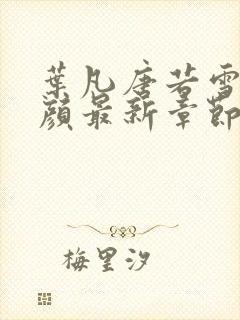 葉凡唐若雪
顏最新章節
梅里汐